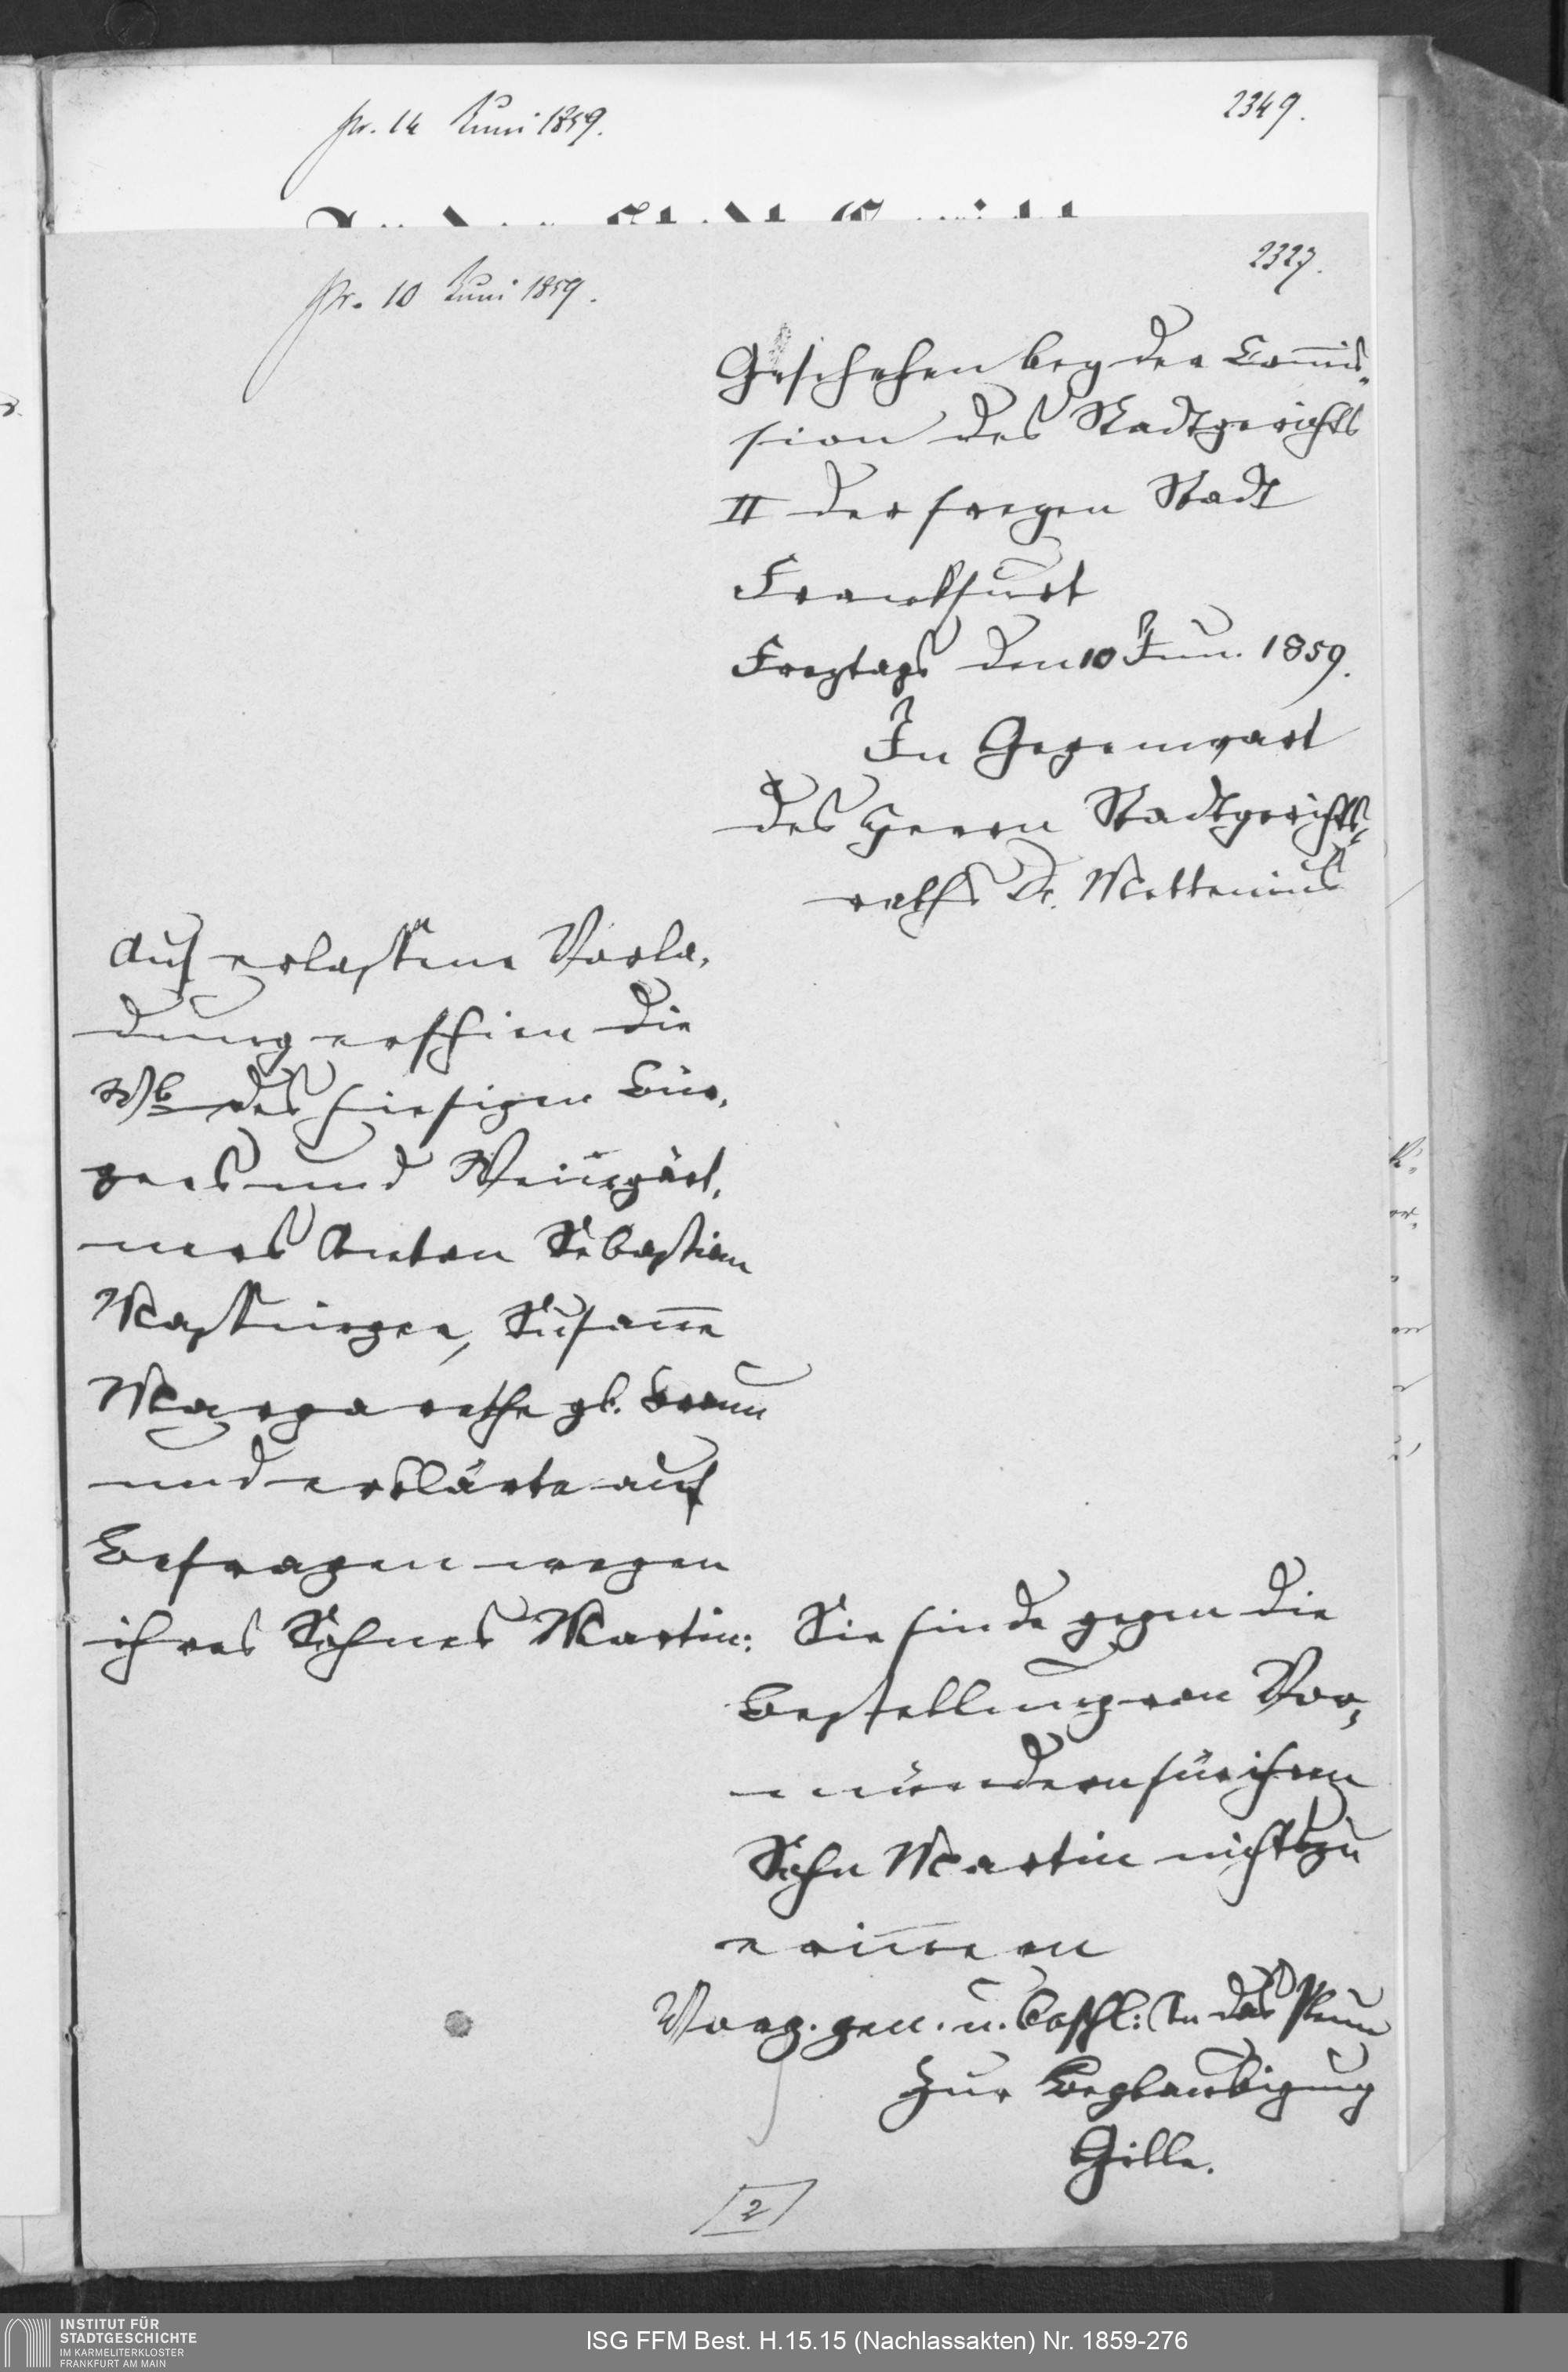 pr. 14 Juni 1859.
2349.
pr. 10 Juni 1859.
2327.
Geschehen bey der Com̅is-
sion des Stadtgerichts
II der freyen Stadt
Frankfurt
Freytags den 10 Jun. 1859.
In Gegenwart
des Herrn Stadtgerichts-
raths Dr. Mettenius
Auf erlassene Vorla-
dung erschien die
Wb des hiesigen Bür-
gers und Weingärt-
ners Anton Sebastian
Massinger, Susan̅e
Margarethe gb. Braun
und erklärte auf
Befragen wegen
ihres Sohnes Martin:
Sie finde gegen die
Bestellung von Vor-
mündern für ihren
Sohn Martin nichts zu
erin̅ern
Vorg. gen. u. beschl: In das Plenum
Zur Beglaubigung
Gille.
2
INSTITUT FÜR
STADTGESCHICHTE
IM KARMELITERKLOSTER
FRANKFURT AM MAIN
ISG FFM Best. H.15.15 (Nachlassakten) Nr. 1859-276